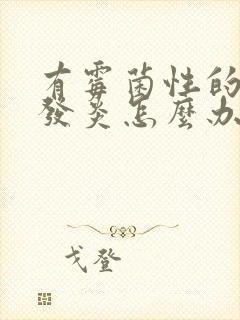 有霉菌性的
發炎怎麼办
戈登